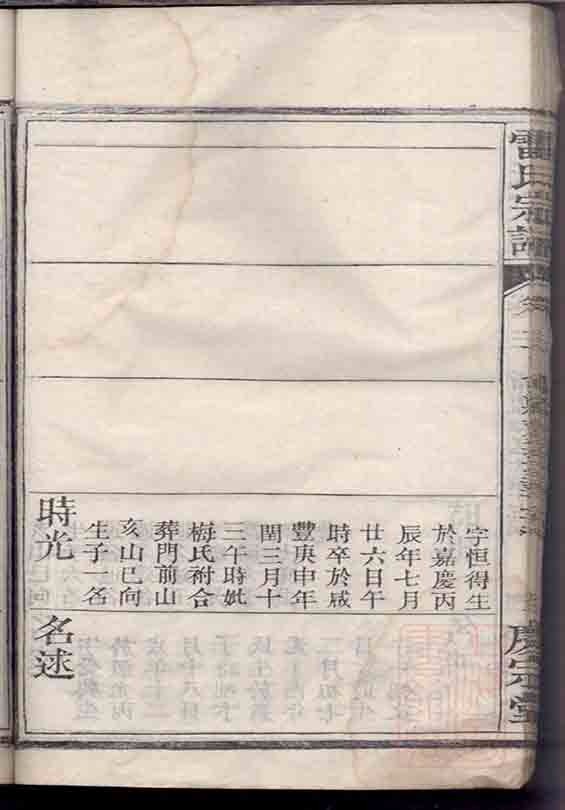 雷氏宗譜
慶宗堂
字恒得生
於嘉慶丙
辰年七月
廿六日午
時卒於咸
豐庚申年
閏三月十
三午時妣
梅氏祔合
葬門前山
亥山巳向
生子一名
時光
名述